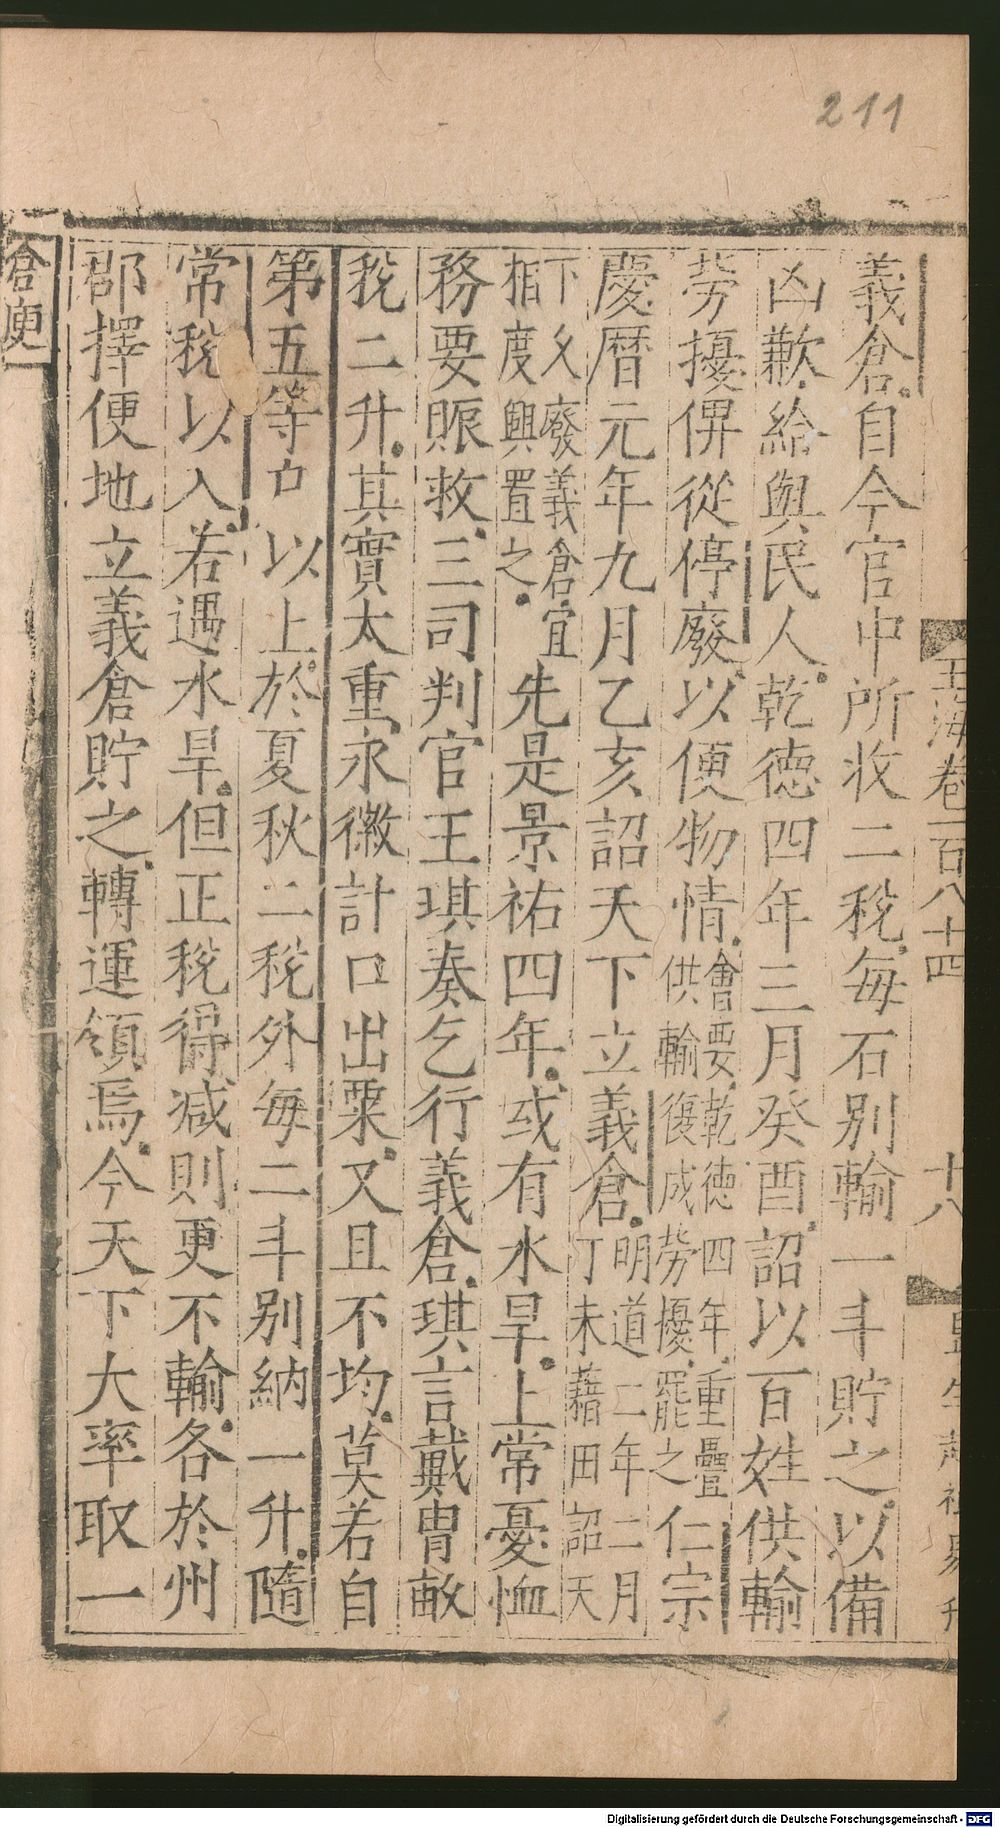 211
義倉自今官中所收二稅每石別輸一斗貯之以備
凶歉給與民人乾德四年三月癸酉詔以百姓供輸
勞擾俾從停廢以便物情會要乾德四年重疊供輸復成勞擾罷之仁宗
慶曆元年九月乙亥詔天下立義倉明道二年二月丁未藉田詔天
下久廢義倉宜相度興置之先是景祐四年或有水旱上常憂恤
務要賑救三司判官王琪奏乞行義倉琪言戴冑畝
稅二升其實太重永徽計口出粟又且不均莫若自
第五等戶以上於夏秋二稅外每二斗別納一升隨
常稅以入若遇水旱但正稅得減則更不輸各於州
郡擇便地立義倉貯之轉運領焉今天下大率取一
玉海卷一百八十四
十八
倉庾
Digitalisierung gefördert durch die Deutsche Forschungsgemeinschaft - DFG